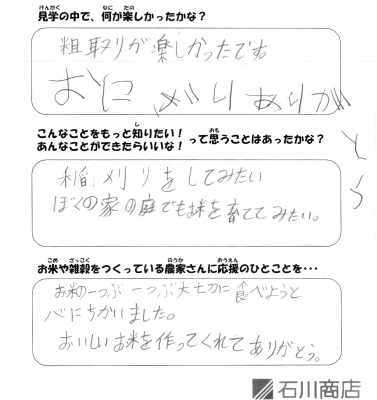 見学の中で、何が楽しかったかな?
粗取りが楽しかったです
おにぎりありがとう
こんなことをもっと知りたい!
あんなことができたらいいな! って思うことはあったかな?
稲刈りをしてみたい
ぼくの家の庭でもお米を育ててみたい。
お米や雑穀をつくっている農家さんに応援のひとことを・・・
お米の一つぶ一つぶ大切に食べようと
心にちかいました。
おいしいお米を作ってくれてありがとう。
石川商店